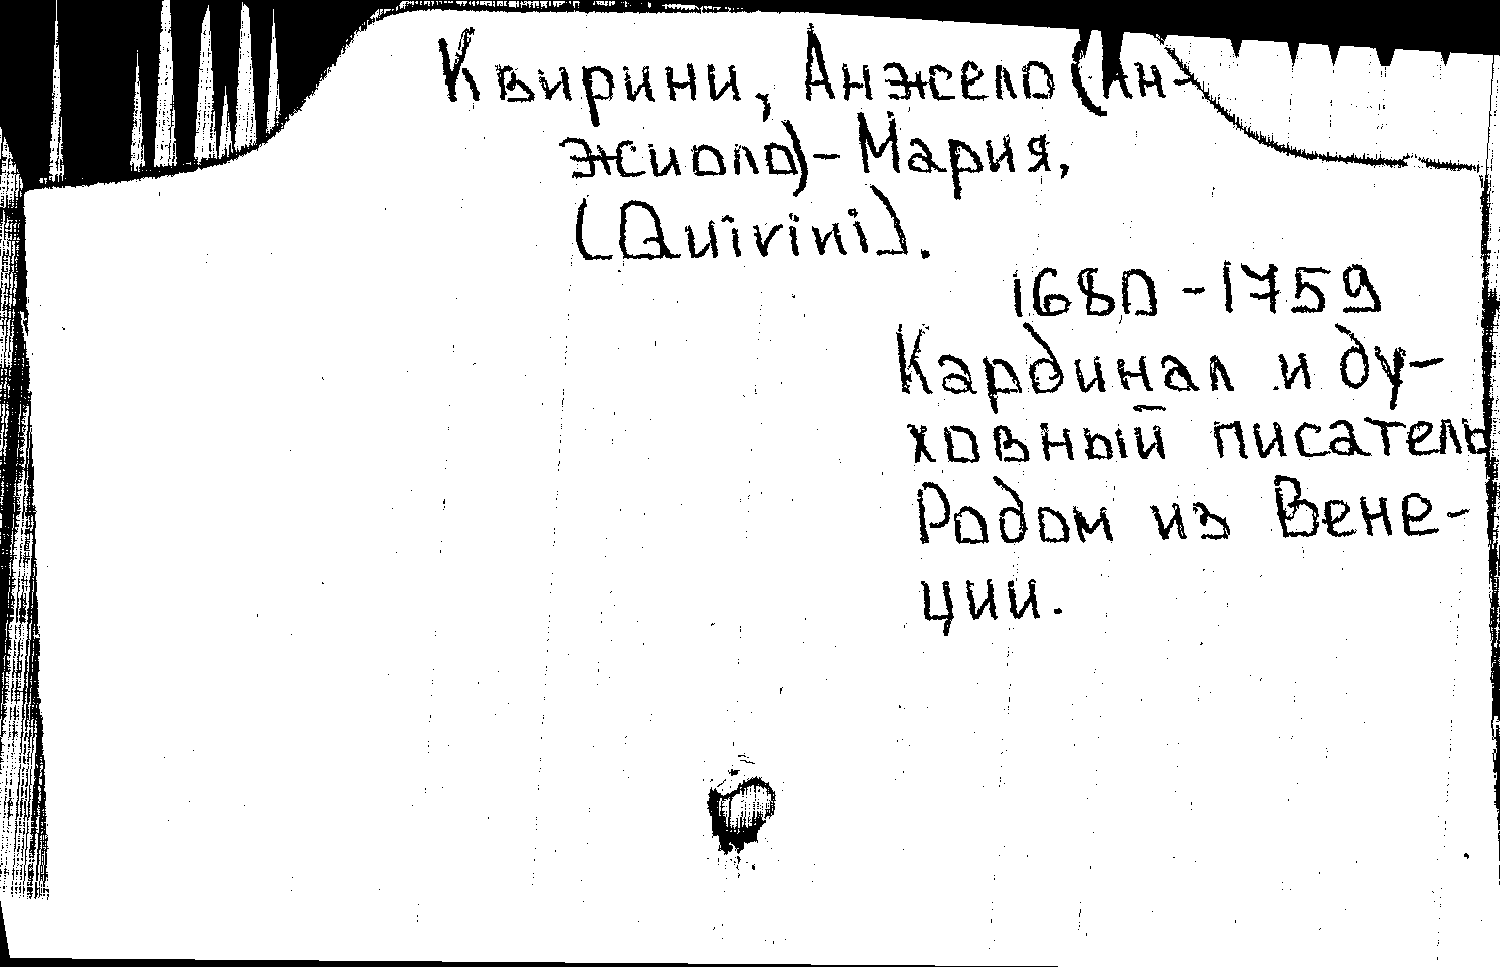 Квирини, Анжело (Ан-
жиоло)-Мария,
(Quirini).
1680-1759
Кардинал и ду-
ховный писатель
Родом из Вене-
ции.